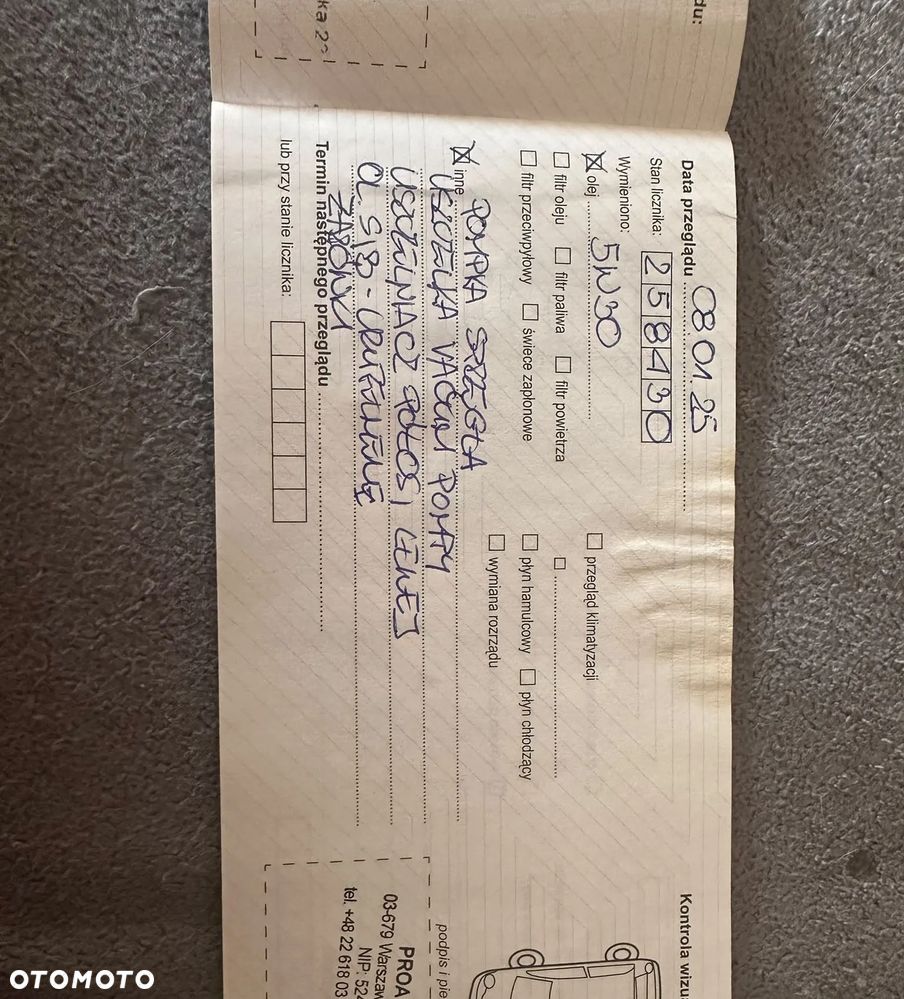 du:
ka 2
Data przeglądu 08.01.25
Stan licznika: 258430
Wymieniono:
olej 5W30
przegląd klimatyzacji
filtr oleju filtr paliwa filtr powietrza
filtr przeciwpyłowy świece zapłonowe
płyn hamulcowy płyn chłodzący
wymiana rozrządu
inne POMPKA SPRZĘGŁA
USZCZELKA VACUM POMPY
USZCZELNIACZ PÓŁOSI LEWEJ
OL. SKP
ŻARÓWKI
Termin następnego przeglądu
lub przy stanie licznika:
Kontrola wizu
podpis i pie
PROA
03-679 Warszaw
NIP: 524
tel. +48 22 618 03
OTOMOTO